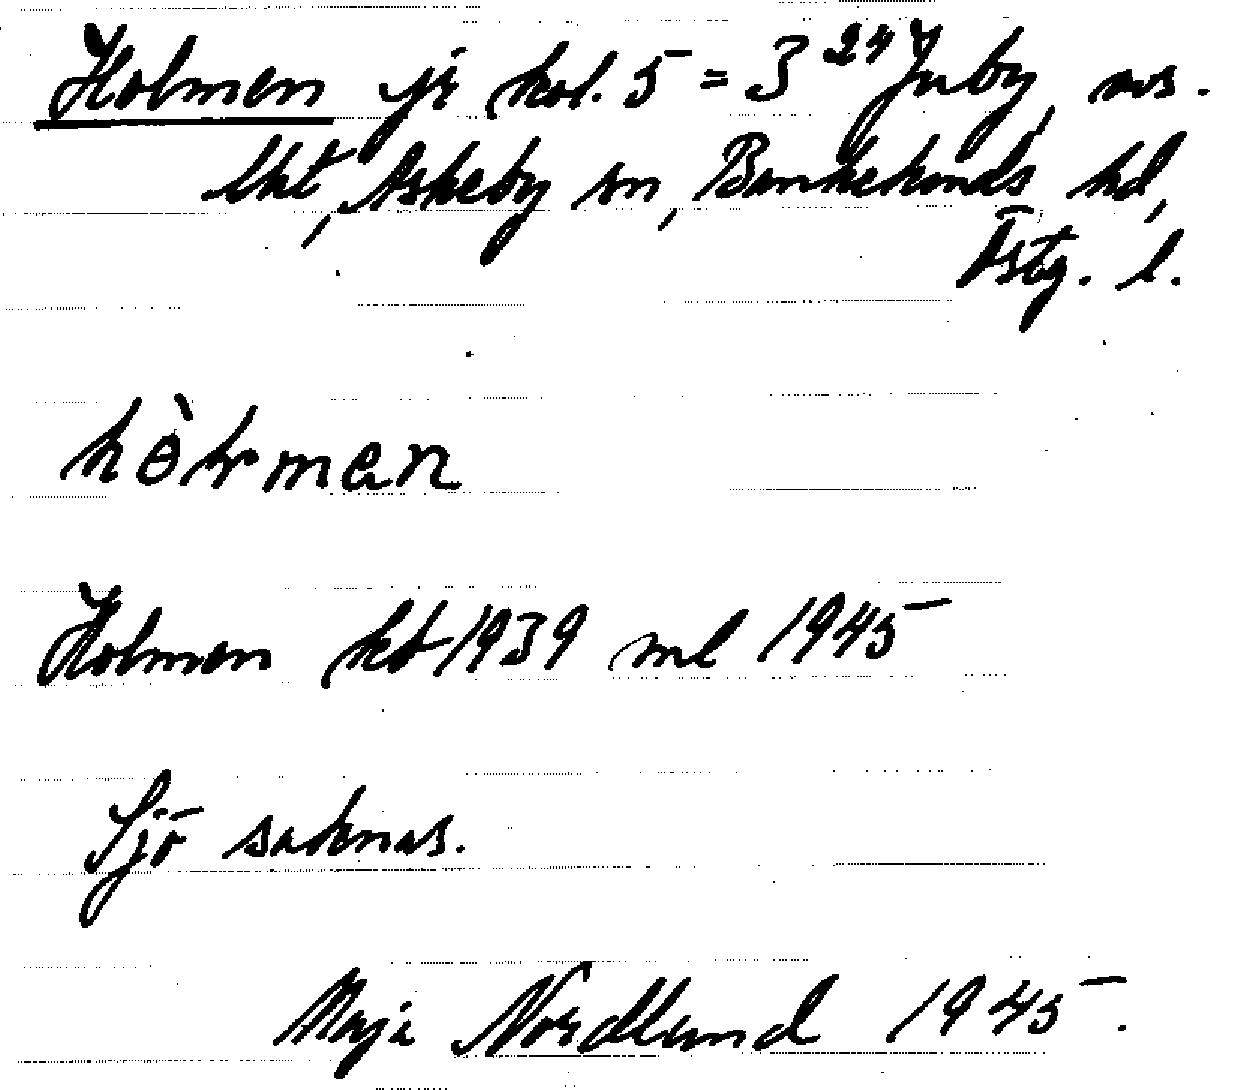 Holmen jr kol. 5 = 3 24 Juby, avs.
lht, Askeby sn, Bankekinds hd,
Östg. l.
hòłman
Holmen kb 1939 ml 1945
Sjö saknas.
Maja Nordlund 1945.